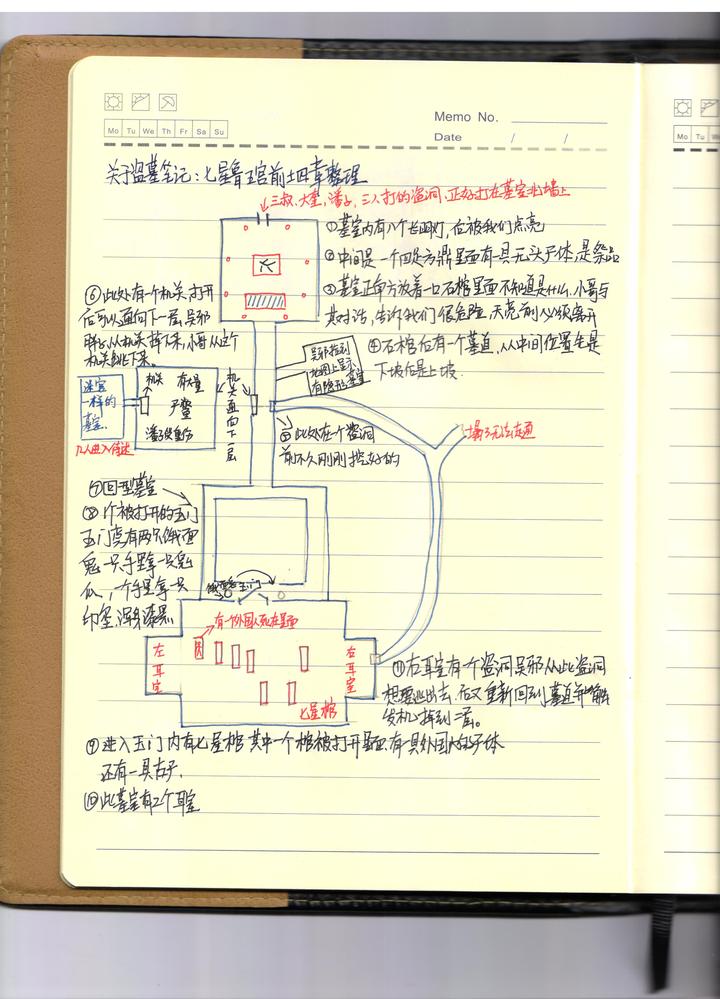 Memo No.
Mo Tu We Th Fr Sa Su
Date / /
Mo Tu
关于盗墓笔记:七星鲁王宫前十四章整理
三叔、大奎,潘子,三人打的盗洞,正好打在墓室北墙上
①墓室内有八个长明灯,后被我们点亮
②中间是一个四足方鼎里面有一具无头尸体,是祭品
③墓室正南方放着一口石棺里面不知道是什么,小哥与
其对话,告诉我们很危险,天亮前必须离开
④石棺后有一个墓道,从中间位置先是
下坡后是上坡.
⑥此处有一个机关,打开
后可以通向下一层吴邪
从机关掉下来,小哥从这个
机关跳下来.
吴邪指到
地图上显示
有隐形墓室
迷宫
一样的
墓室.
机关
有大量
尸蟞
潘子受重伤
机关通向下一层
几人进入
⑤此处在一个盗洞
前不久刚刚挖好的
塌了无法走通
⑦回型墓室
⑧个被打开的玉门
玉门旁有两只饿面
鬼一只手里拿一只鬼
爪,一个手里拿一只
印玺,浑身漆黑
玉门
有一外国人死在里面
左耳室
右耳室
七星棺
⑪右耳室有个盗洞吴邪从此盗洞
想要逃出去,后又重新回到墓道并触
发机掉到二层。
⑨进入玉门内有七星棺其中一个棺被打开里面有一具外国人的尸体
还有一具古尸.
⑩此墓室有2个耳室